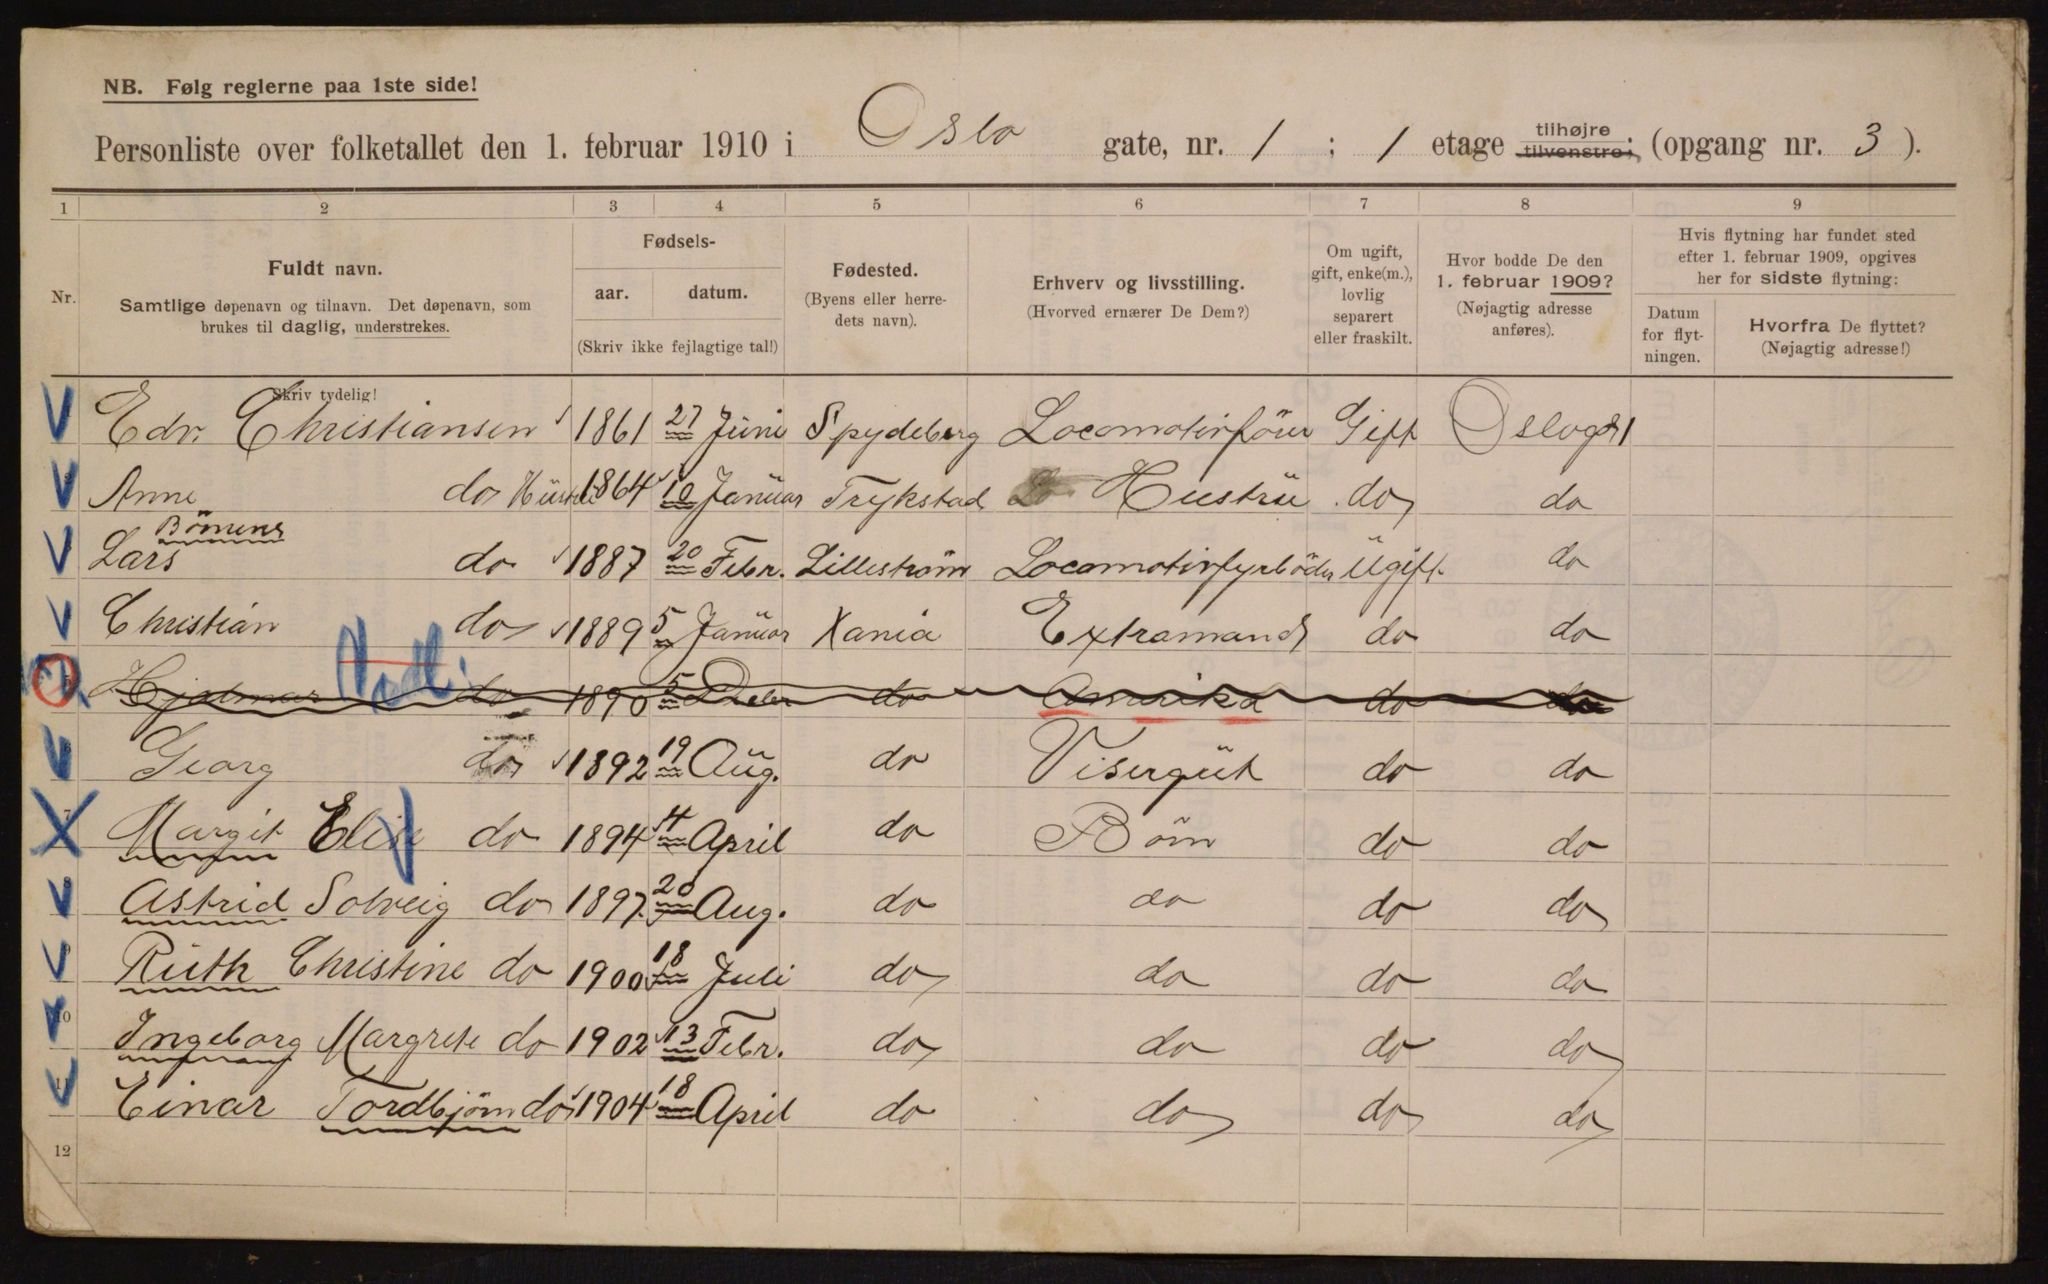 NB. Følg reglerne paa 1ste side!
Personliste over folketallet den 1. februar 1910 i Oslo gate, nr. 1 ; 1 etage tilhøjre tilvenstre; (opgang nr. 3 ).
1 2 3 4 5 6 7 8 9
Nr.
Fuldt navn.
Samtlige døpenavn og tilnavn. Det døpenavn, som
brukes til daglig, understrekes.
Skriv tydelig!
Fødsels-
aar. datum.
(Skriv ikke fejlagtige tal!)
Fødested.
(Byens eller herre-
dets navn).
Erhverv og livsstilling.
(Hvorved ernærer De Dem?)
Om ugift,
gift, enke(m.),
lovlig
separert
eller fraskilt.
Hvor bodde De den
1. februar 1909?
(Nøjagtig adresse
anføres).
Hvis flytning har fundet sted
efter 1. februar 1909, opgives
her for sidste flytning:
Datum
for flyt-
ningen.
Hvorfra De flyttet?
(Nøjagtig adresse!)
Edv. Christiansen 1861 27 Jüni Spydeberg Locomotivförer Gift Oslogd 1
Anne do 1864 10 Janüar Trykstad Hustrü do do
Börnene
Lars do 1887 20 Febr. Lilleström Locomotivfyrböder Ugift do
Christian do 1889 5 Janüar Xania Extramand do do
5 Hjalmar do 1890 5 do Amerika do do
6 Georg do 1892 19 Aüg. do Visergüt do do
7 Margit Elise do 1894 4 April do Börn do do
8 Astrid Solveig do 1897 20 Aug. do do do do
9 Rüth Christine do 1900 18 Juli do do do do
10 Ingeborg Margrete do 1902 13 Febr. do do do do
11 Einar Tordbjörn do 1904 18 April do do do do
12